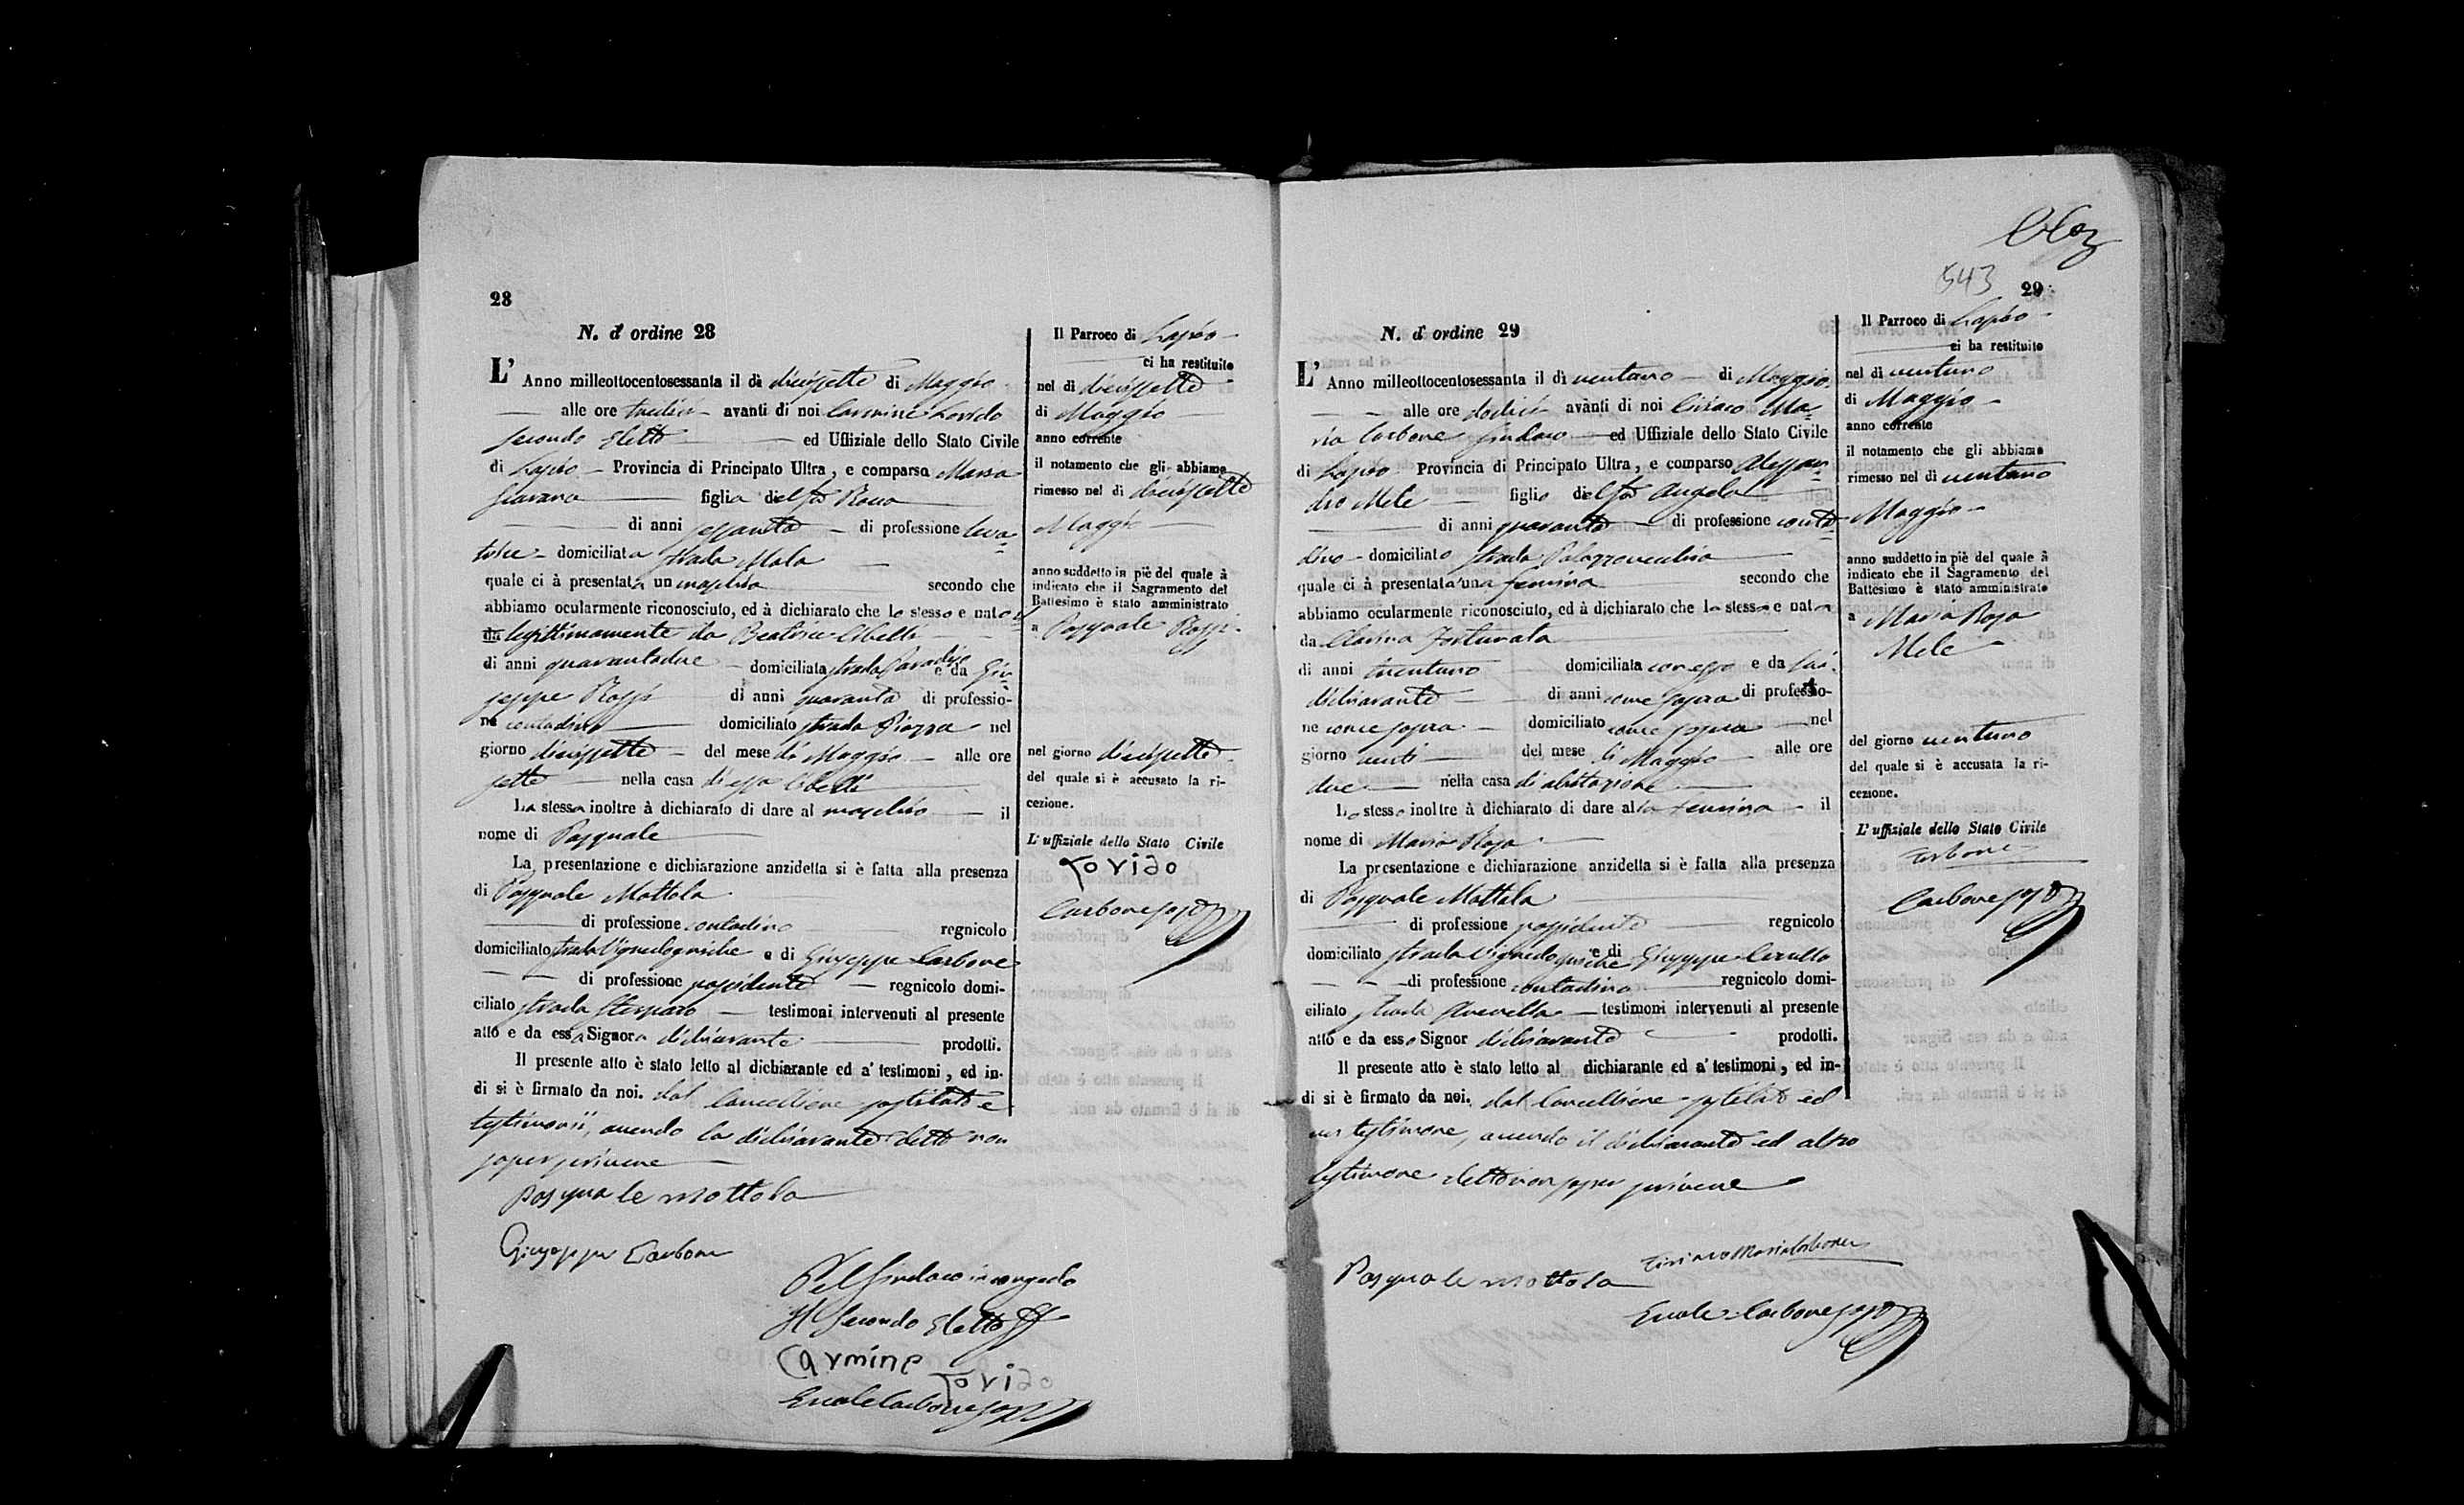 28
N. d' ordine 28
L' Anno milleottocentosessanta il dì diecissette di Maggio
alle ore tredici avanti di noi Carmine Lovido
Secondo Eletto ed Uffiziale dello Stato Civile
di Lapio Provincia di Principato Ultra, e comparsa Maria
figlia del fu Rocco
di anni sessanta di professione leva=
trice domiciliata strada Mala
quale ci à presentata un maschio secondo che
abbiamo ocularmente riconosciuto, ed à dichiarato che lo stesso e nato
da legittimamente da Beatrice
di anni quarantadue domiciliata strada Paradiso e da Giu=
seppe Rossi di anni quaranta di professio-
ne contadino domiciliato strada Piazza nel
giorno diecissette del mese di Maggio alle ore
sette nella casa di essa
La stessa inoltre à dichiarato di dare al maschio il
nome di Pasquale
La presentazione e dichiarazione anzidetta si è fatta alla presenza
di Pasquale Mottola
di professione contadino regnicolo
domiciliato strada e di Giuseppe Carbone
di professione possidente regnicolo domi-
ciliato strada testimoni intervenuti al presente
atto e da essa Signora dichiarante prodotti.
Il presente atto è stato letto al dichiarante ed a' testimoni, ed in-
di si è firmato da noi. dal Cancelliere sostituto e
testimonii, avendo la dichiarante detto non
saper scrivere
Pasquale Mottola
Giuseppe Carbone
Pel Sindaco in congedo
Il Secondo Eletto
Carmine Lovido
Ercole Carbone
Il Parroco di Lapio
ci ha restituito
nel dì diecissette
di Maggio
anno corrente
il notamento che gli abbiamo
rimesso nel di diecissette
Maggio
anno suddetto in piè del quale à
indicato che il Sagramento del
Battesimo è stato amministrato
a Pasquale Rossi
nel giorno diecissette
del quale si è accusato la ri-
cezione.
L' uffiziale dello Stato Civile
Lovido
Carbone
543
29
N. d' ordine 29
L' Anno milleottocentosessanta il dì ventuno di Maggio
alle ore dodici avanti di noi Ciriaco Ma=
ria Carbone Sindaco ed Uffiziale dello Stato Civile
di Lapio Provincia di Principato Ultra, e comparso Alessan=
dro Mele figlio del fu Angelo
di anni quaranta di professione conta=
dino domiciliato strada Palazzovecchio
quale ci à presentata una femina secondo che
abbiamo ocularmente riconosciuto, ed à dichiarato che la stessa e nata
da Clarina Fortunata
di anni trentuno domiciliata con esso e da lui
dichiarante di anni come sopra di professio-
ne come sopra domiciliato come sopra nel
giorno venti del mese di Maggio alle ore
due nella casa di abitazione
Lo stesso inoltre à dichiarato di dare alla femina il
nome di Maria Rosa
La presentazione e dichiarazione anzidetta si è fatta alla presenza
di Pasquale Mottola
di professione possidente regnicolo
domiciliato strada e di Giuseppe Cerullo
di professione contadino regnicolo domi-
ciliato strada testimoni intervenuti al presente
atto e da esso Signor dichiarante prodotti.
Il presente atto è stato letto al dichiarante ed a' testimoni, ed in-
di si è firmato da noi. dal Cancelliere sostituto ed
un testimone, avendo il dichiarante ed altro
testimone detto non saper scrivere
Pasquale Mottola
Ciriaco Maria Carbone
Ercole Carbone
Il Parroco di Lapio
ci ha restituito
nel dì ventuno
di Maggio
anno corrente
il notamento che gli abbiamo
rimesso nel di ventuno
Maggio
anno suddetto in piè del quale à
indicato che il Sagramento del
Battesimo è stato amministrato
a Maria Rosa
Mele
del giorno ventuno
del quale si è accusata la ri-
cezione.
L' uffiziale dello Stato Civile
Carbone
Carbone